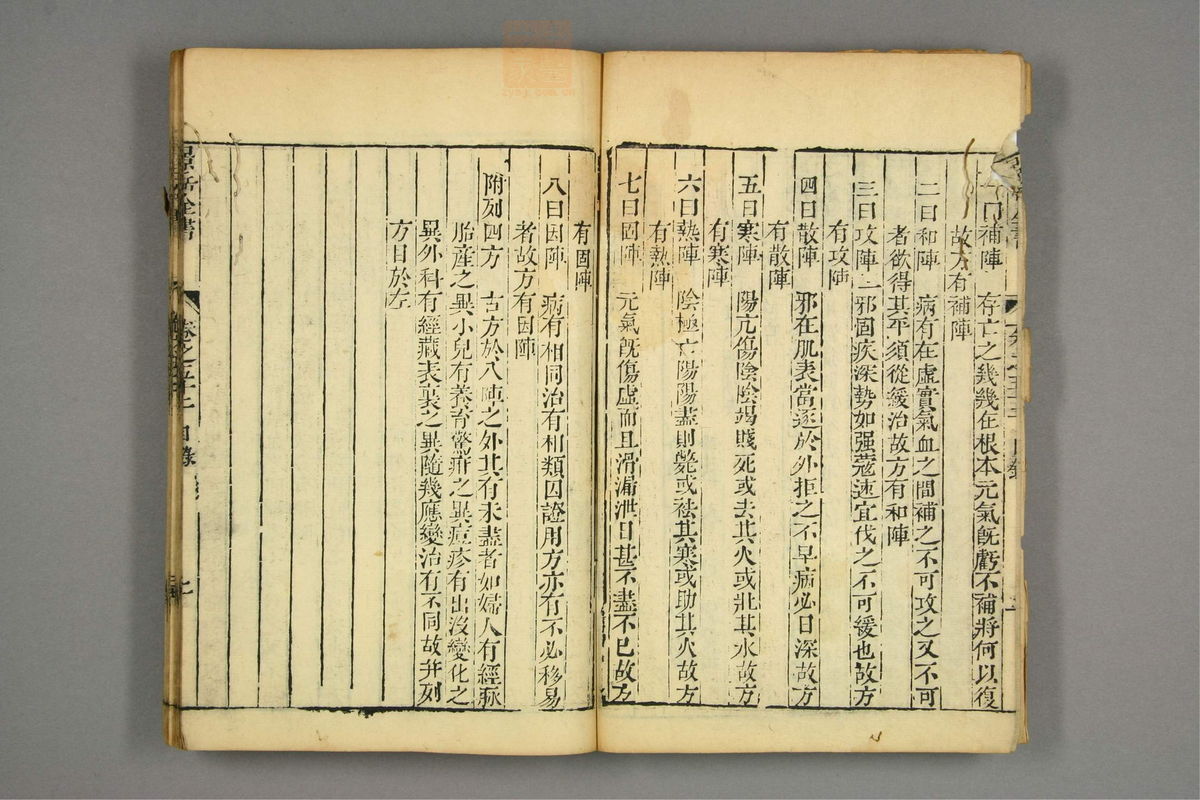 一曰補陣 存亡之幾幾在根本元氣旣虧不補將何以復
故方有補陣
二曰和陣 病有在虛實氣血之間補之不可攻之又不可
者欲得其平須從緩治故方有和陣
三曰攻陣 邪固疾深勢如强寇速宜伐之不可緩也故方
有攻陣
四曰散陣 邪在肌表當逐於外拒之不早病必日深故方
有散陣
五曰寒陣 陽亢傷陰陰竭賤死或去其火或壯其水故方
有寒陣
六曰熱陣 陰極亡陽陽盡則斃或祛其寒或助其火故方
有熱陣
七曰固陣 元氣旣傷虛而且滑漏泄日甚不盡不已故方
有固陣
八曰因陣 病有相同治有相類因證用方亦有不必移易
者故方有因陣
附列四方 古方於八陣之外其有未盡者如婦人有經脉
胎產之異小兒有養育驚疳之異痘疹有出沒變化之
異外科有經藏表裏之異隨幾應變治有不同故并列
方目於左
景岳全書 卷之五十 目錄 七